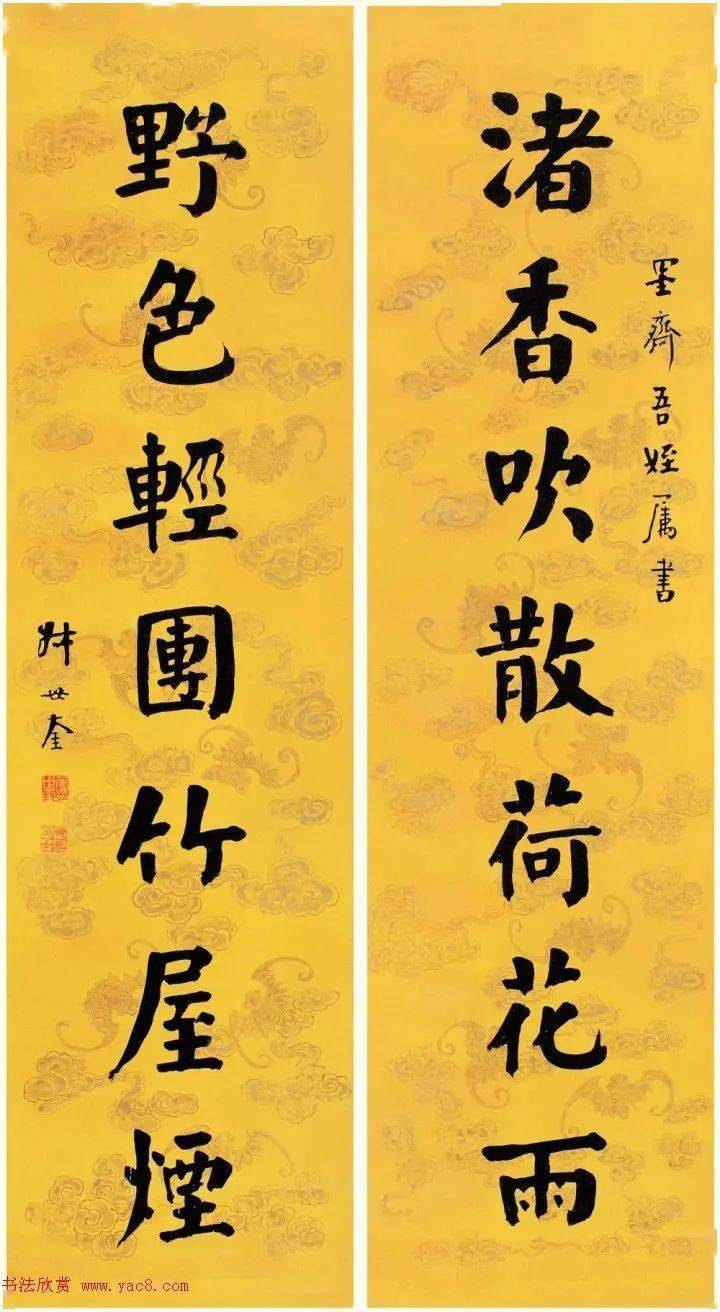 墨齋吾姪属書
渚香吹散荷花雨
野色輕團竹屋煙
世奎
书法欣赏 www.yac8.com